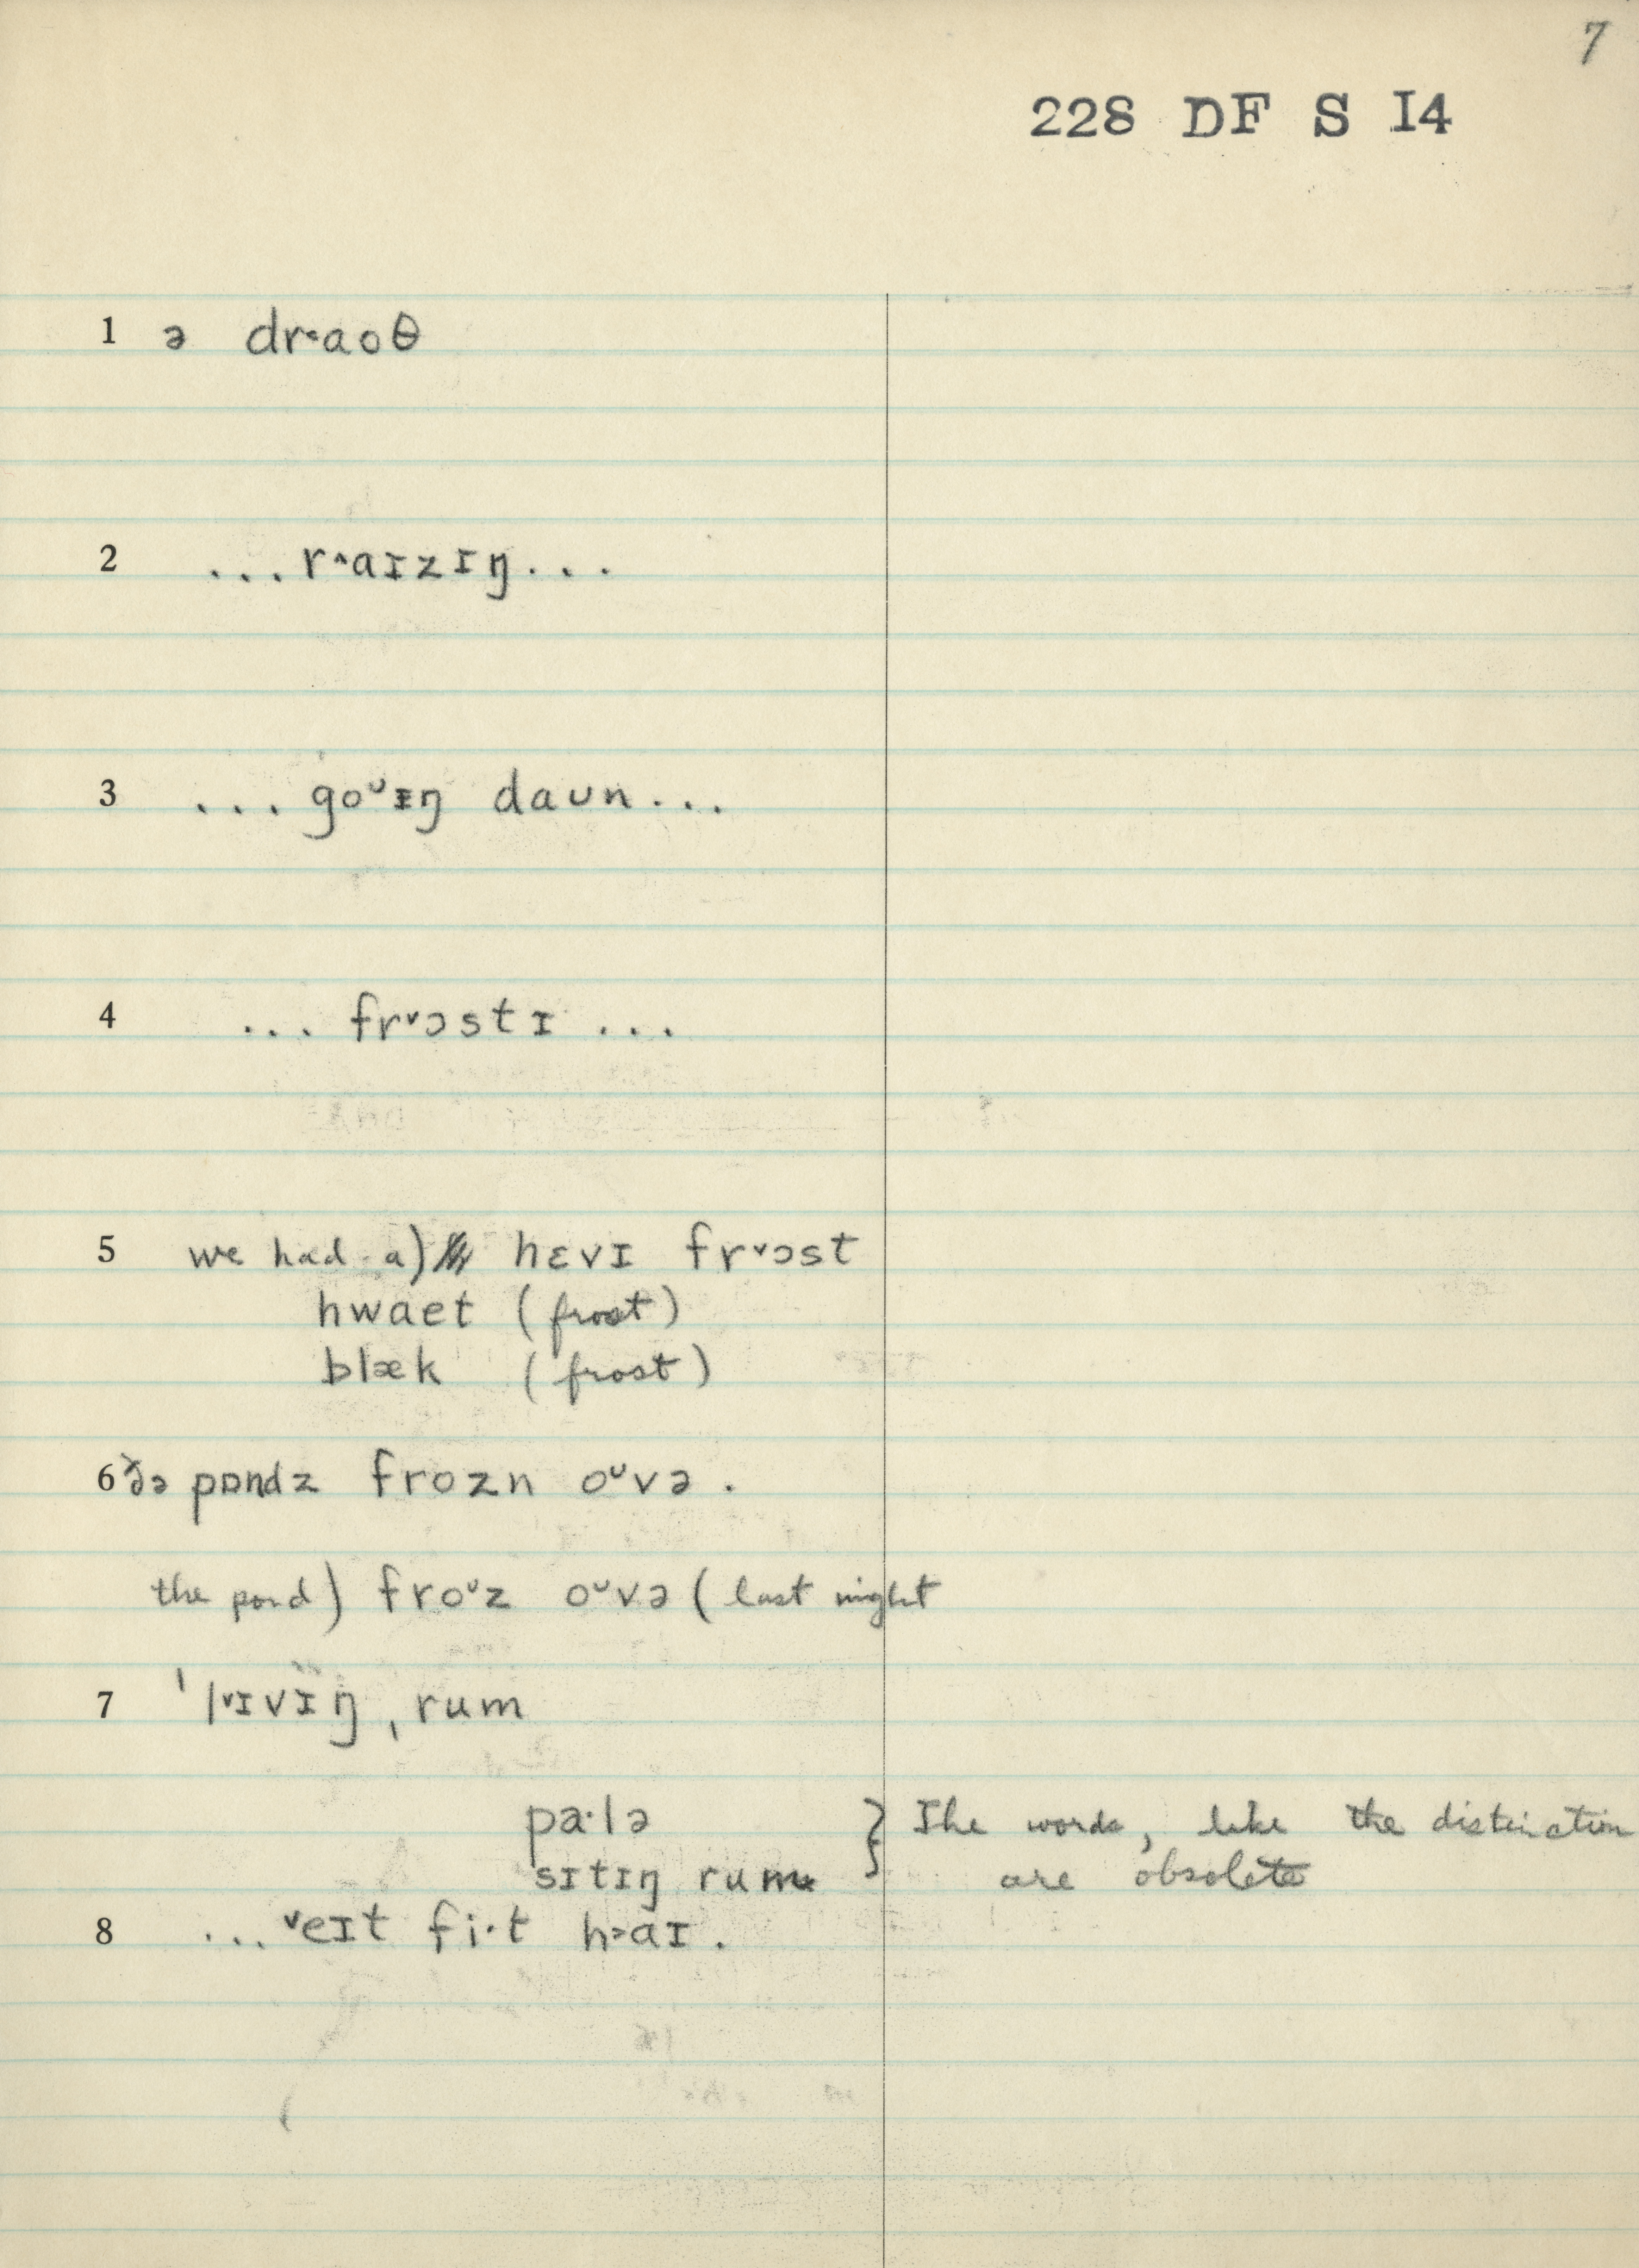 7
228 DF S I4
1 ə dr˂aoθ
2 ...r˄aɪzɪŋ...
3 ...goᶷɪŋ daʊn...
4 ... fr˅ɔstɪ ...
5 we had a) hɛvɪ fr˅ɔst
hwaet (frost)
blæk (frost)
6 ðə pɒndz frozn oᶷvə .
the pond) froᶷz oᶷvə ( last night
7 ˈl˅ɪvɪŋ ˌrum
pa·lə
sɪtɪŋ rum } The words, like the distinction
are obsolete
8 ...˅eɪt fi·t h˃aɪ .